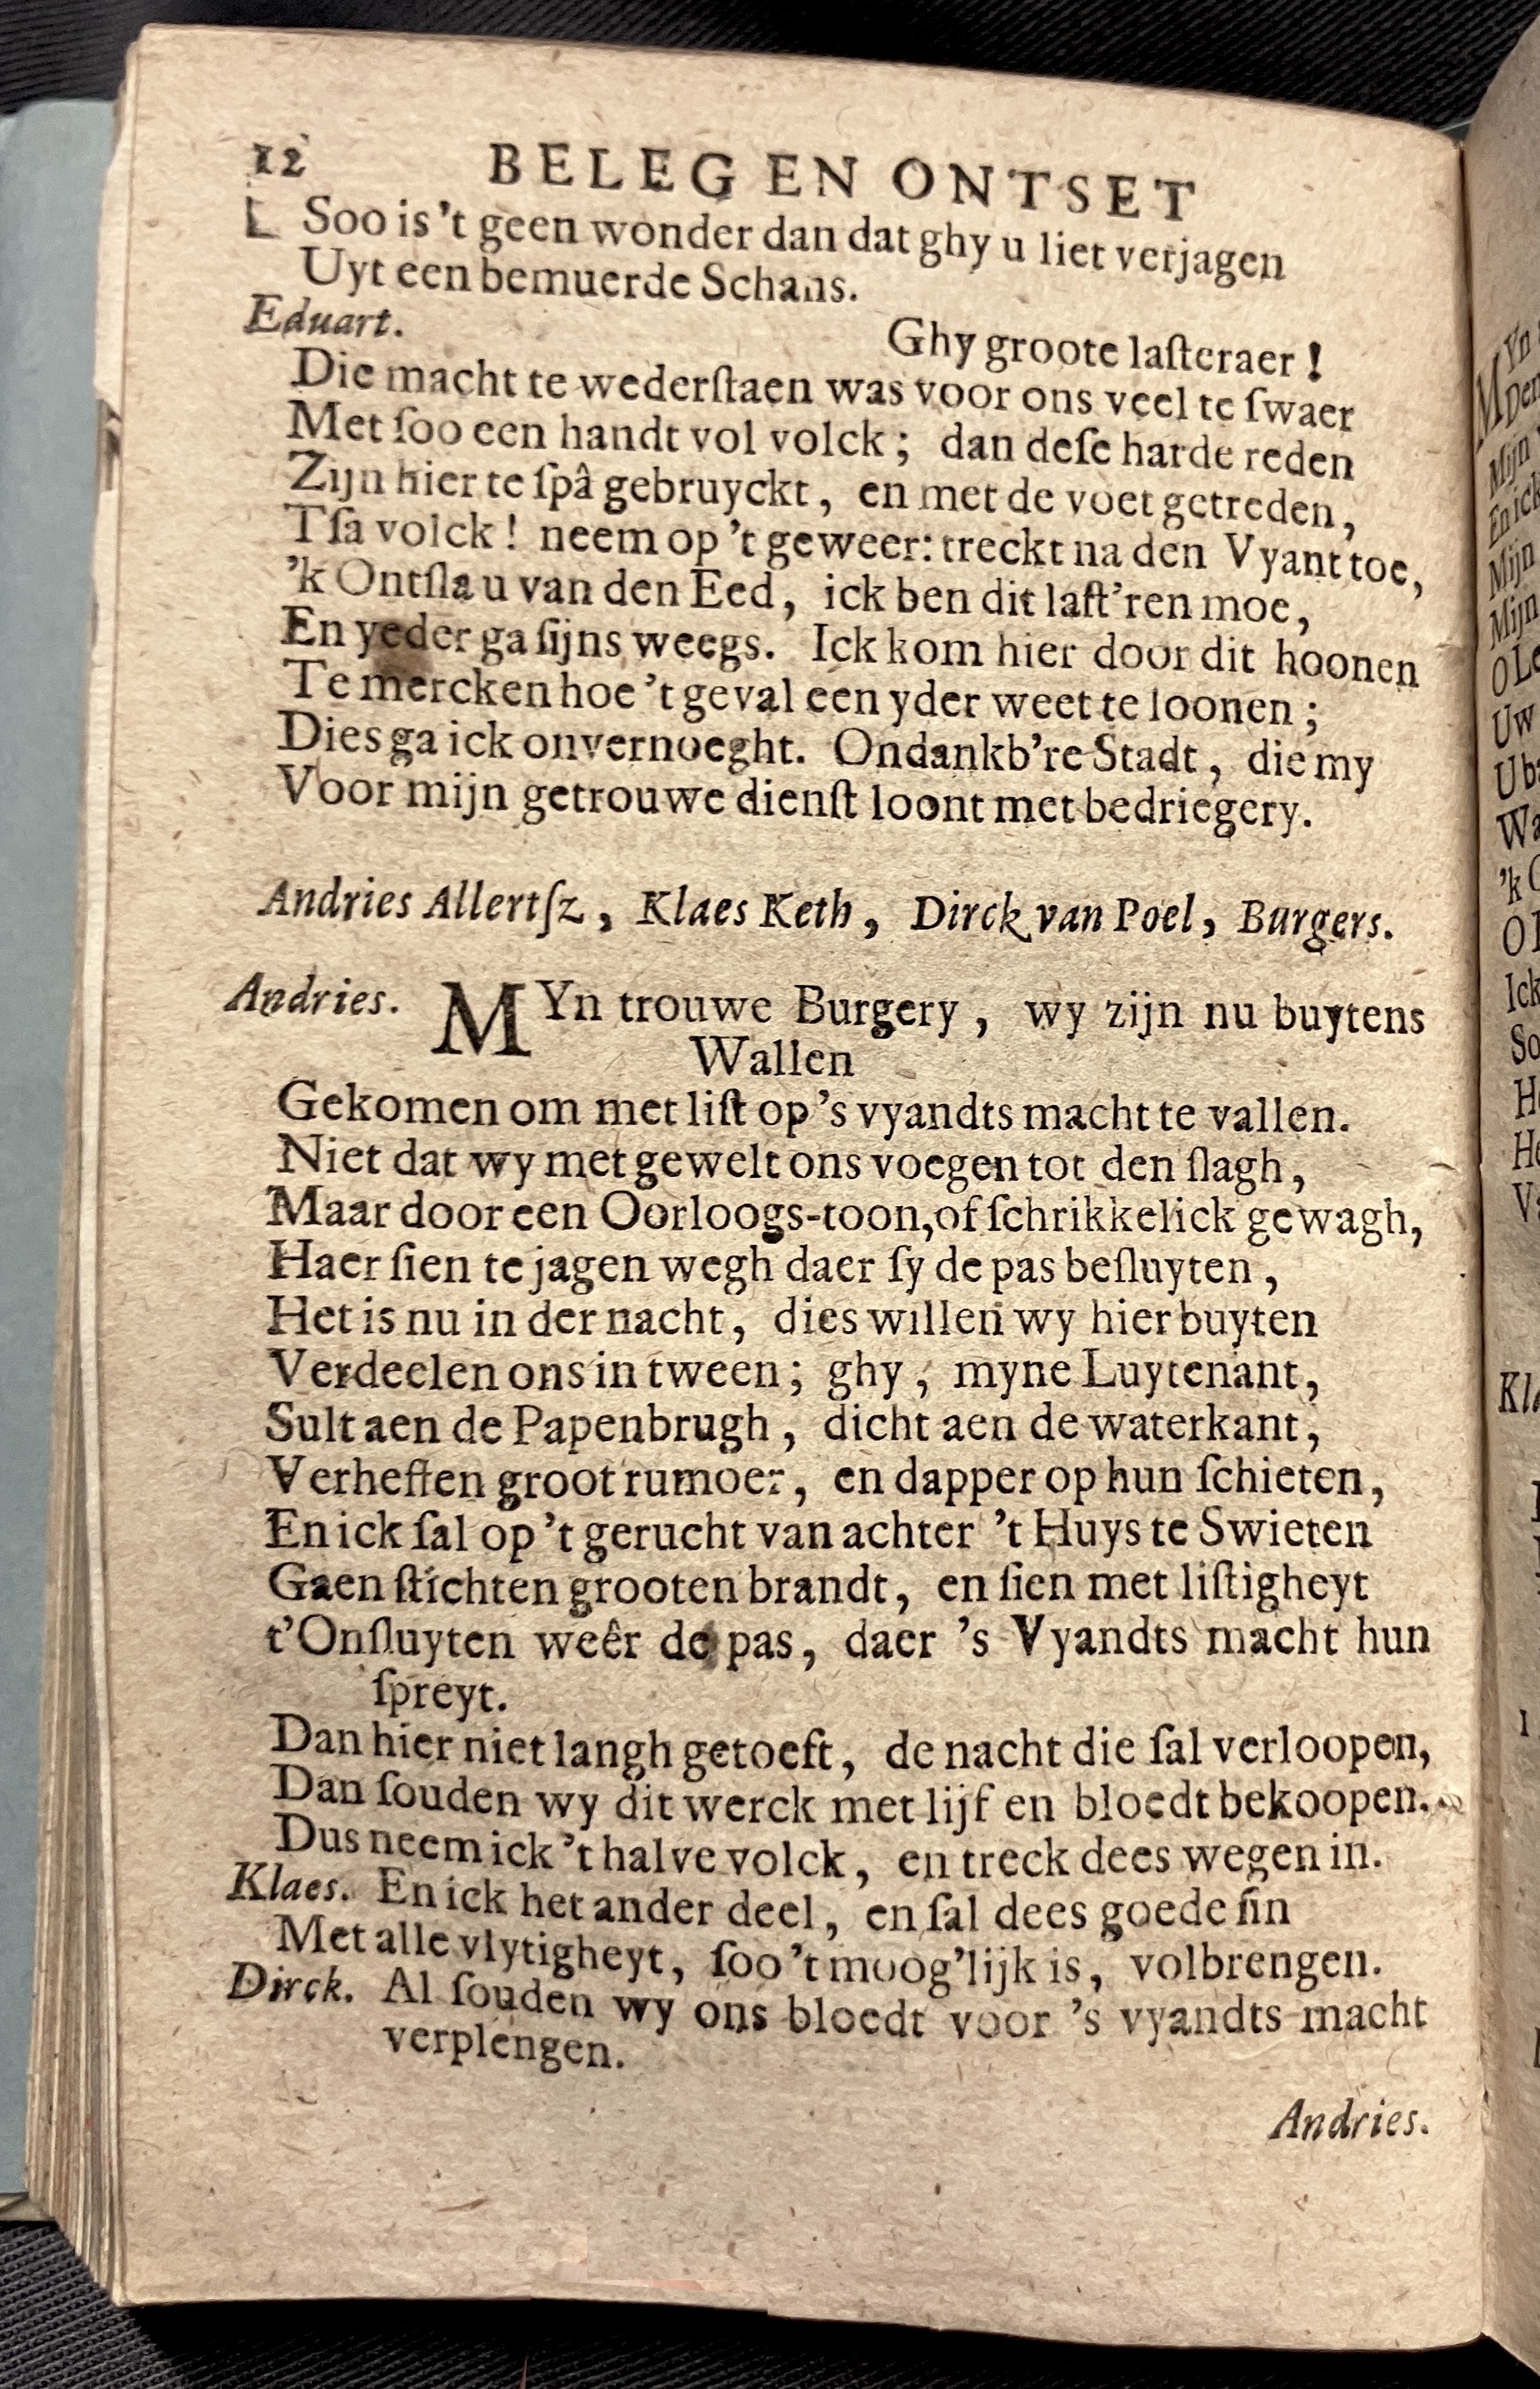 12 BELEG EN ONTSET
Soo is 't geen wonder dan dat ghy u liet verjagen
Uyt een bemuerde Schans.
Eduart.
Ghy groote laſteraer!
Die macht te wederſtaen was voor ons veel te ſwaer
Met ſoo een handt vol volck; dan deſe harde reden
Zijn hier te ſpâ gebruyckt, en met de voet getreden,
Tſa volck! neem op 't geweer: treckt na den Vyant toe,
'k Ontſla u van den Eed, ick ben dit laſt'ren moe,
En yeder ga ſijns weegs. Ick kom hier door dit hoonen
Te mercken hoe 't geval een yder weet te loonen;
Dies ga ick onvernoeght. Ondankb're Stadt, die my
Voor mijn getrouwe dienſt loont met bedriegery.
Andries Allertſz, Klaes Keth, Dirck van Poel, Burgers.
Andries. MYn trouwe Burgery, wy zijn nu buytens
Wallen
Gekomen om met liſt op 's vyandts macht te vallen.
Niet dat wy met gewelt ons voegen tot den ſlagh,
Maar door een Oorloogs-toon, of ſchrikkelick gewagh,
Haer ſien te jagen wegh daer ſy de pas beſluyten,
Het is nu in der nacht, dies willen wy hier buyten
Verdeelen ons in tween; ghy, myne Luytenant,
Sult aen de Papenbrugh, dicht aen de waterkant,
Verheffen groot rumoer, en dapper op hun ſchieten,
En ick ſal op 't gerucht van achter 't Huys te Swieten
Gaen ſtichten grooten brandt, en ſien met liſtigheyt
t'Onſluyten weêr de pas, daer 's Vyandts macht hun
ſpreyt.
Dan hier niet langh getoeft, de nacht die ſal verloopen,
Dan ſouden wy dit werck met lijf en bloedt bekoopen.
Dus neem ick 't halve volck, en treck dees wegen in.
Klaes. En ick het ander deel, en ſal dees goede ſin
Met alle vlytigheyt, ſoo 't moog'lijk is, volbrengen.
Dirck. Al ſouden wy ons bloedt voor 's vyandts macht
verplengen.
Andries.